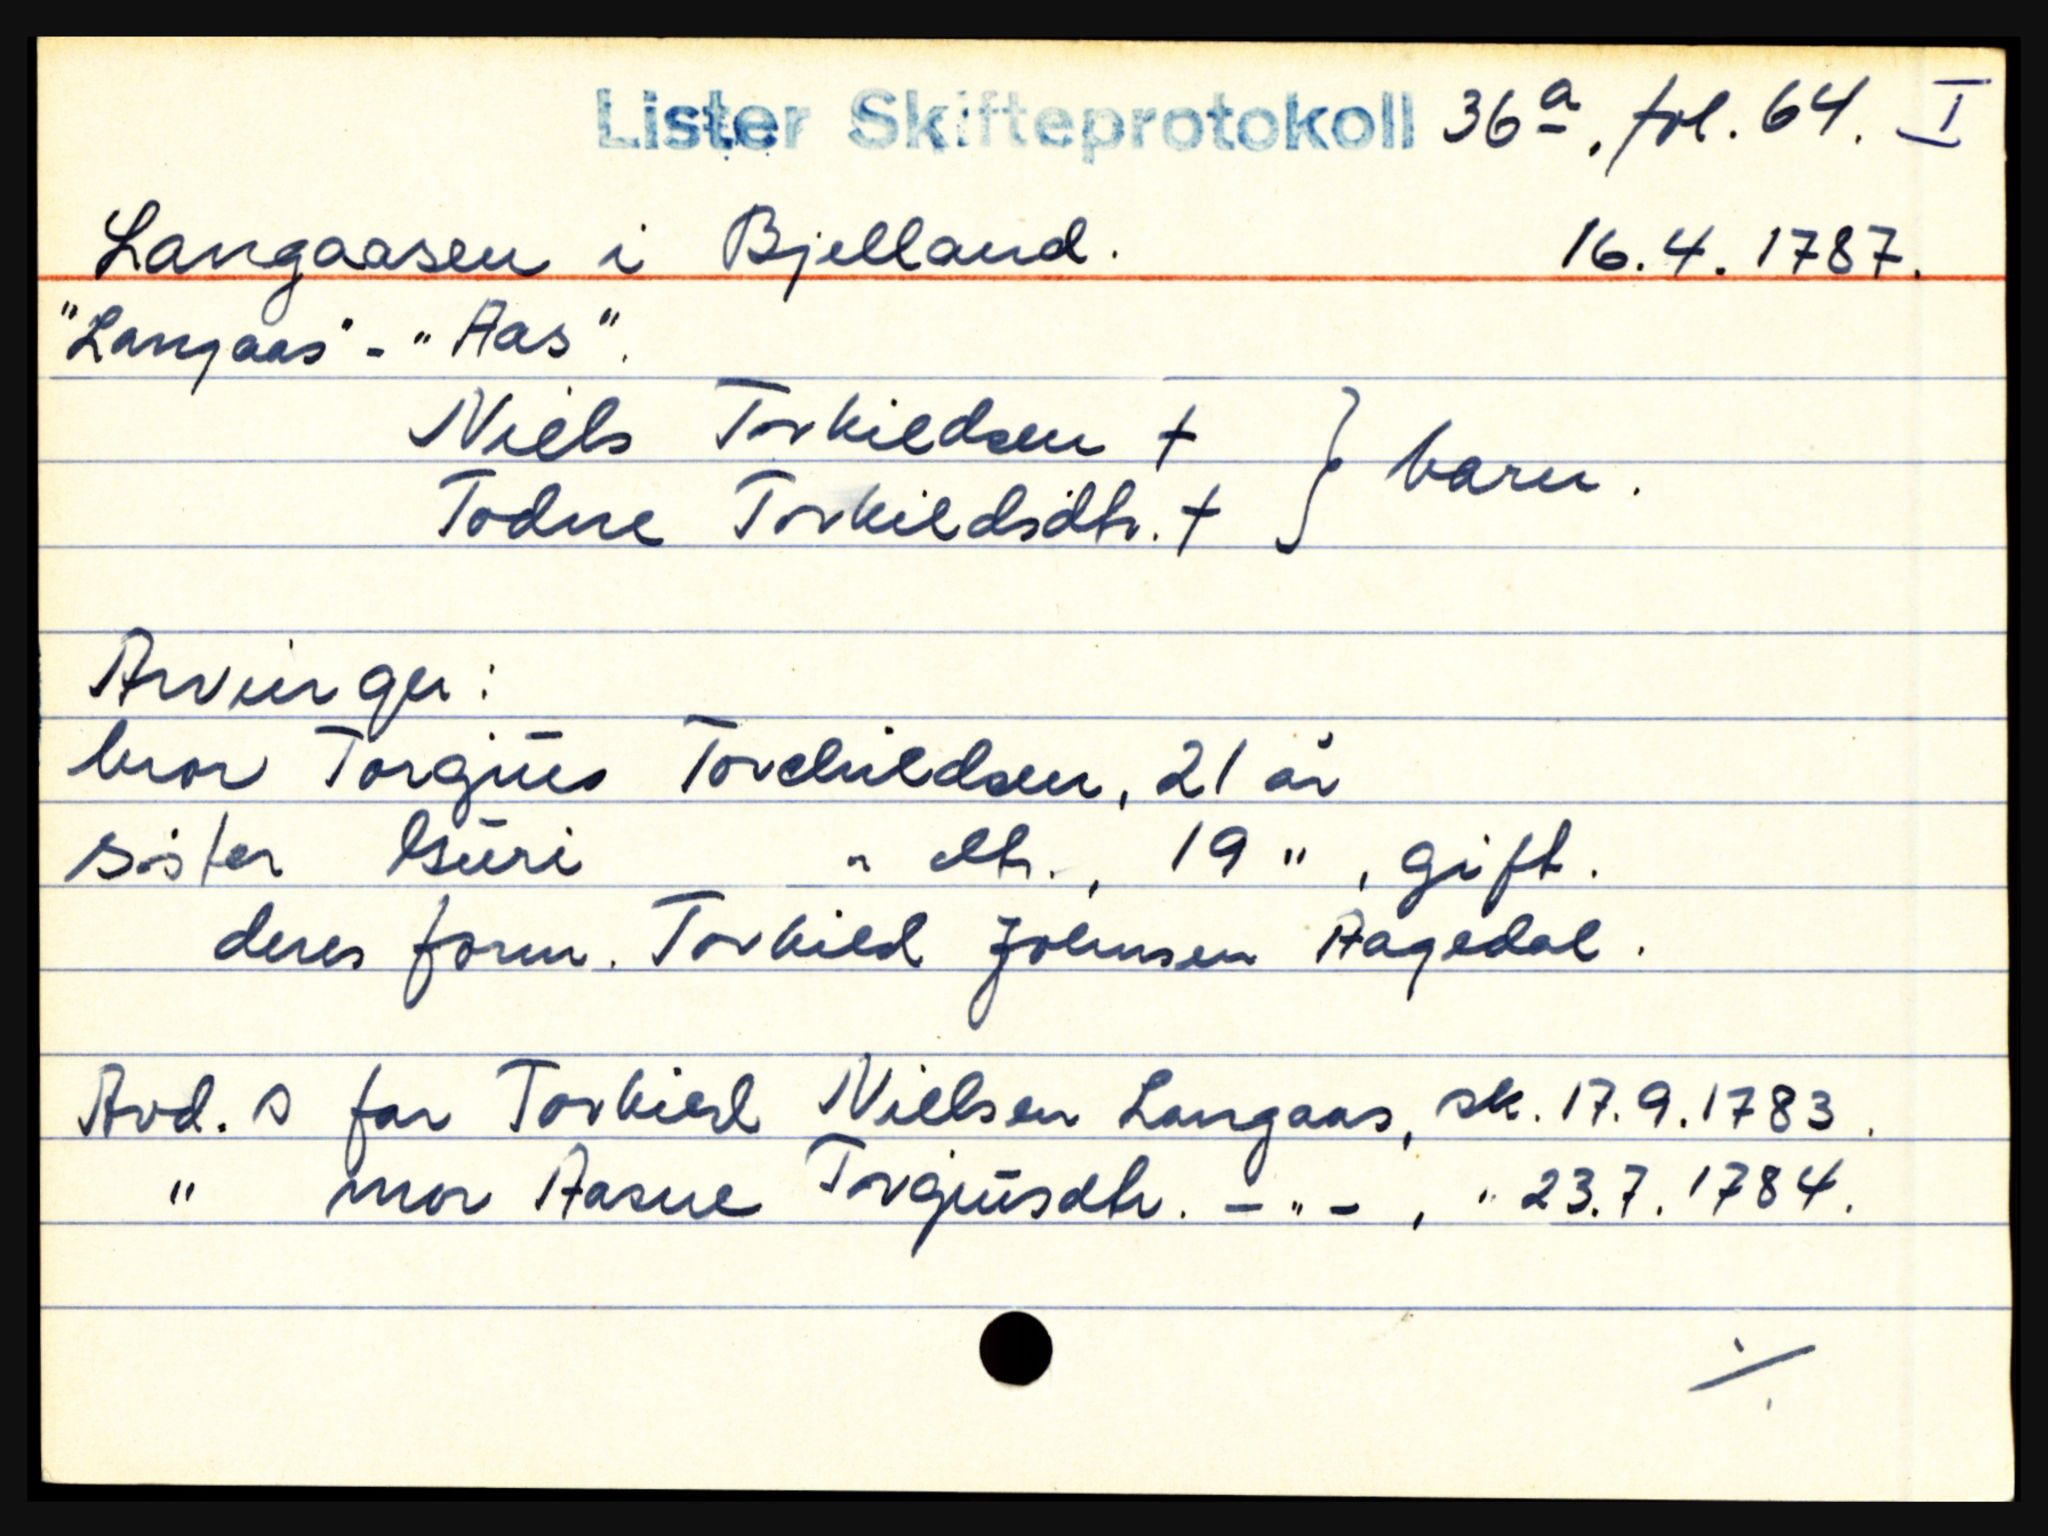 Lister Skifteprotokoll 36a, fol. 64. I
Langaasen i Bjelland. 16.4.1787.
"Langaas" - "Aas".
Niels Torkildsen †
Todne Torkildsdtr. † } barn.
Arvinger:
bror Torgius Torchildsen, 21 år
søster Guri " dtr., 19 ", gift.
deres form. Torkild Johnsen Aagedal.
Avd. s far Torkild Nielsen Langaas, sk. 17.9.1783.
" mor Aasne Torgiusdtr. - " - , " 23.7.1784.
./.